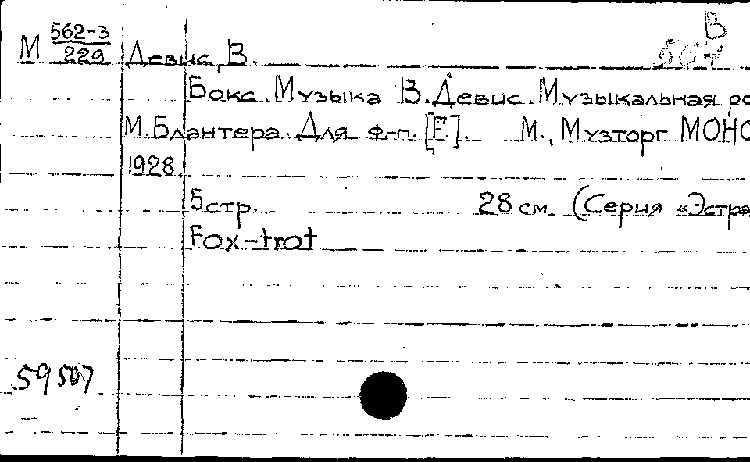 В
М 562-3/229 Девис, В. 567
Бокс. Музыка В. Девис. Музыкальная
М. Блантера. Для ф-п. [Е]. М., Музторг МОНО
1928.
5 стр. 28 см. (Серия «Эстра
Fox-trot
59507